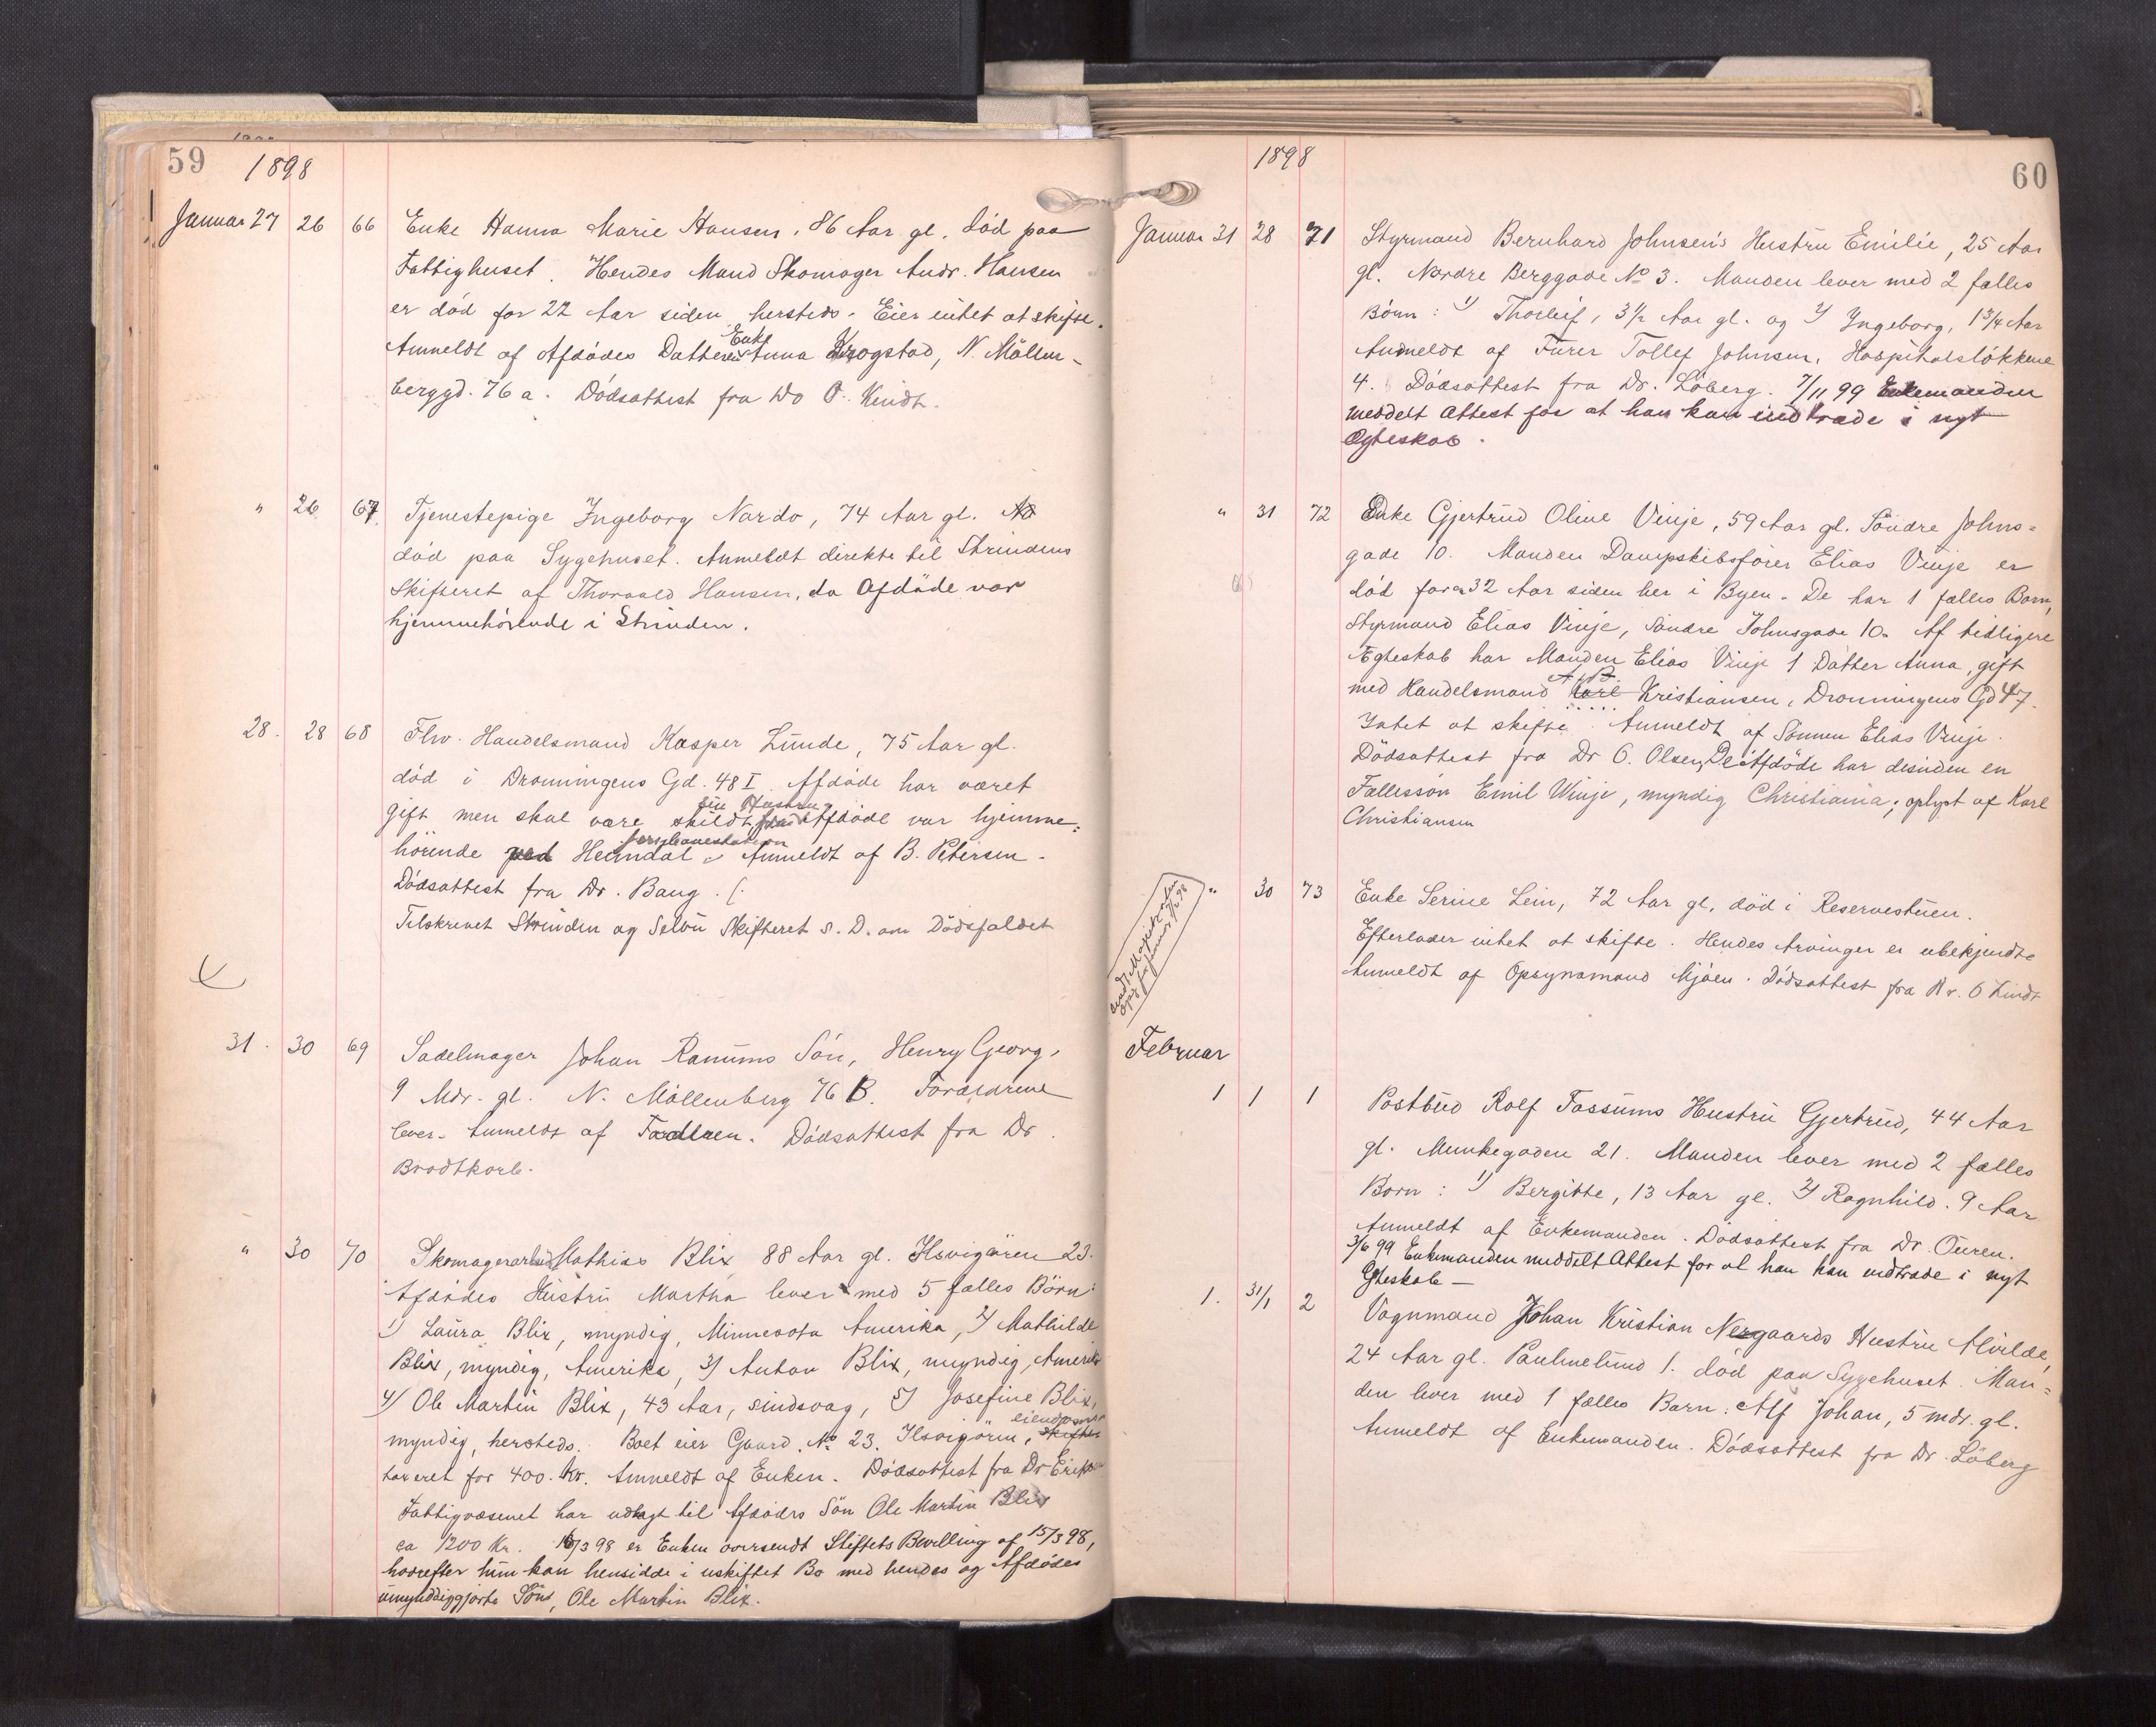 59
1898
Januar 27 26 66 Enke Hanna Marie Hansen, 86 Aar gl. död paa
Fattighuset. Hendes Mand Skomager Andr. Hansen
er död for 22 Aar siden hersteds. Eier intet at skifte.
Anmeldt af Afdödes Datter Enke Anna Krogstad, N. Möllen-
berggd. 76 a. Dödsattest fra Dr O. Kindt.
" 26 67. Tjenestepige Ingeborg Nardo, 74 Aar gl.
död paa Sygehuset. Anmeldt direkte til Strindens
Skifteret af Thorvald Hansen, da Afdöde var
hjemmehörende i Strinden.
28. 28 68 Fhv. Handelsmand Kasper Lunde, 75 Aar gl.
död i Dronningens Gd. 48 I. Afdöde har været
gift men skal være skildt fra sin Hustru Afdöde var hjemme-
hörende ved Heimdal Jernbanestation. Anmeldt af B. Petersen.
Dödsattest fra Dr. Bang. (.
Tilskrevet Strinden og Selbu Skifteret s. D. om Dödsfaldet
31. 30 69 Sadelmager Johan Ranums Sön, Henry Georg,
9 Mdr. gl. N. Möllenberg 76 B. Forældrene
lever. Anmeldt af Faderen. Dödsattest fra Dr.
Brodtkorb.
" 30 70 Skomagerarbeid Mathias Blix 88 Aar gl. Ilsvigören 23.
Afdödes Hustru Martha lever med 5 fælles Börn:
1) Laura Blix, myndig, Minnesota Amerika, 2) Mathilde
Blix, myndig, Amerika, 3) Anton Blix, myndig, Amerika
4) Ole Martin Blix, 43 Aar, sindsvag, 5) Josefine Blix,
myndig, hersteds. Boet eier Gaard No 23. Ilsvigören, skiftes
taxeret for 400. Kr. Anmeldt af Enken. Dödsattest fra Dr
Fattigvæsenet har udlagt til Afdödes Sön Ole Martin Blix
ca 1200 Kr. 16/3 98 er Enken oversendt Stiftets Bevilling af 15/3 98,
hvorefter hun kan hensidde i uskiftet Bo med hendes og Afdödes
umyndiggjorte Sön, Ole Martin Blix.
1898
60
Januar 31 28 71 Styrmand Bernhard Johnsen's Hustru Emilie, 25 Aar
gl. Nordre Berggade No 3. Manden lever med 2 fælles
Börn: 1) Thorleif, 3 1/2 Aar gl. og 2) Ingeborg, 1 3/4 Aar
Anmeldt af Furer Tollef Johnsen, Hospitalslökkene
4. Dödsattest fra Dr. Löberg. 7/11 99 Enkemanden
meddelt Attest for at han kan indtræde i nyt
Ægteskab.
" 31 72 Enke Gjertrud Oline Vinje, 59 Aar gl. Söndre Johns-
gade 10. Manden Dampskibsförer Elias Vinje er
död for ca 32 Aar siden her i Byen. De har 1 fælles Barn,
Styrmand Elias Vinje, Söndre Johnsgade 10. Af tidligere
Ægteskab har Manden Elias Vinje 1 Datter Anna, gift
med Handelsmand Karl Kristiansen, Dronningens Gd 47.
Intet at skifte. Anmeldt af Sönnen Elias Vinje.
Dödsattest fra Dr O. Olsen. Afdöde har desuden en
Fællessön Emil Winje, myndig Christiania; oplyst af Karl
Christiansen
" 30 73 Enke Serine Lein, 72 Aar gl, död i Reservestuen.
Efterlader intet at skifte. Hendes Arvinger er ubekjendte
Anmeldt af Opsynsmand Mjöen. Dödsattest fra Dr. O Kindt
Februar
1 1 1 Postbud Rolf Fossums Hustru Gjertrud, 44 Aar
gl. Munkegaden 21. Manden lever med 2 fælles
Börn: 1) Bergitte, 13 Aar gl. 2) Ragnhild. 9 Aar
Anmeldt af Enkemanden. Dödsattest fra Dr. Ouren.
3/6 99 Enkemanden meddelt Attest for at han kan indtræde i nyt
Ægteskab —
1. 31/1 2 Vognmand Johan Kristian Nergaards Hustru Alvilde,
24 Aar gl. Paulinelund 1. död paa Sygehuset. Man-
den lever med 1 fælles Barn: Alf Johan, 5 mdr. gl.
Anmeldt af Enkemanden. Dödsattest fra Dr. Löberg